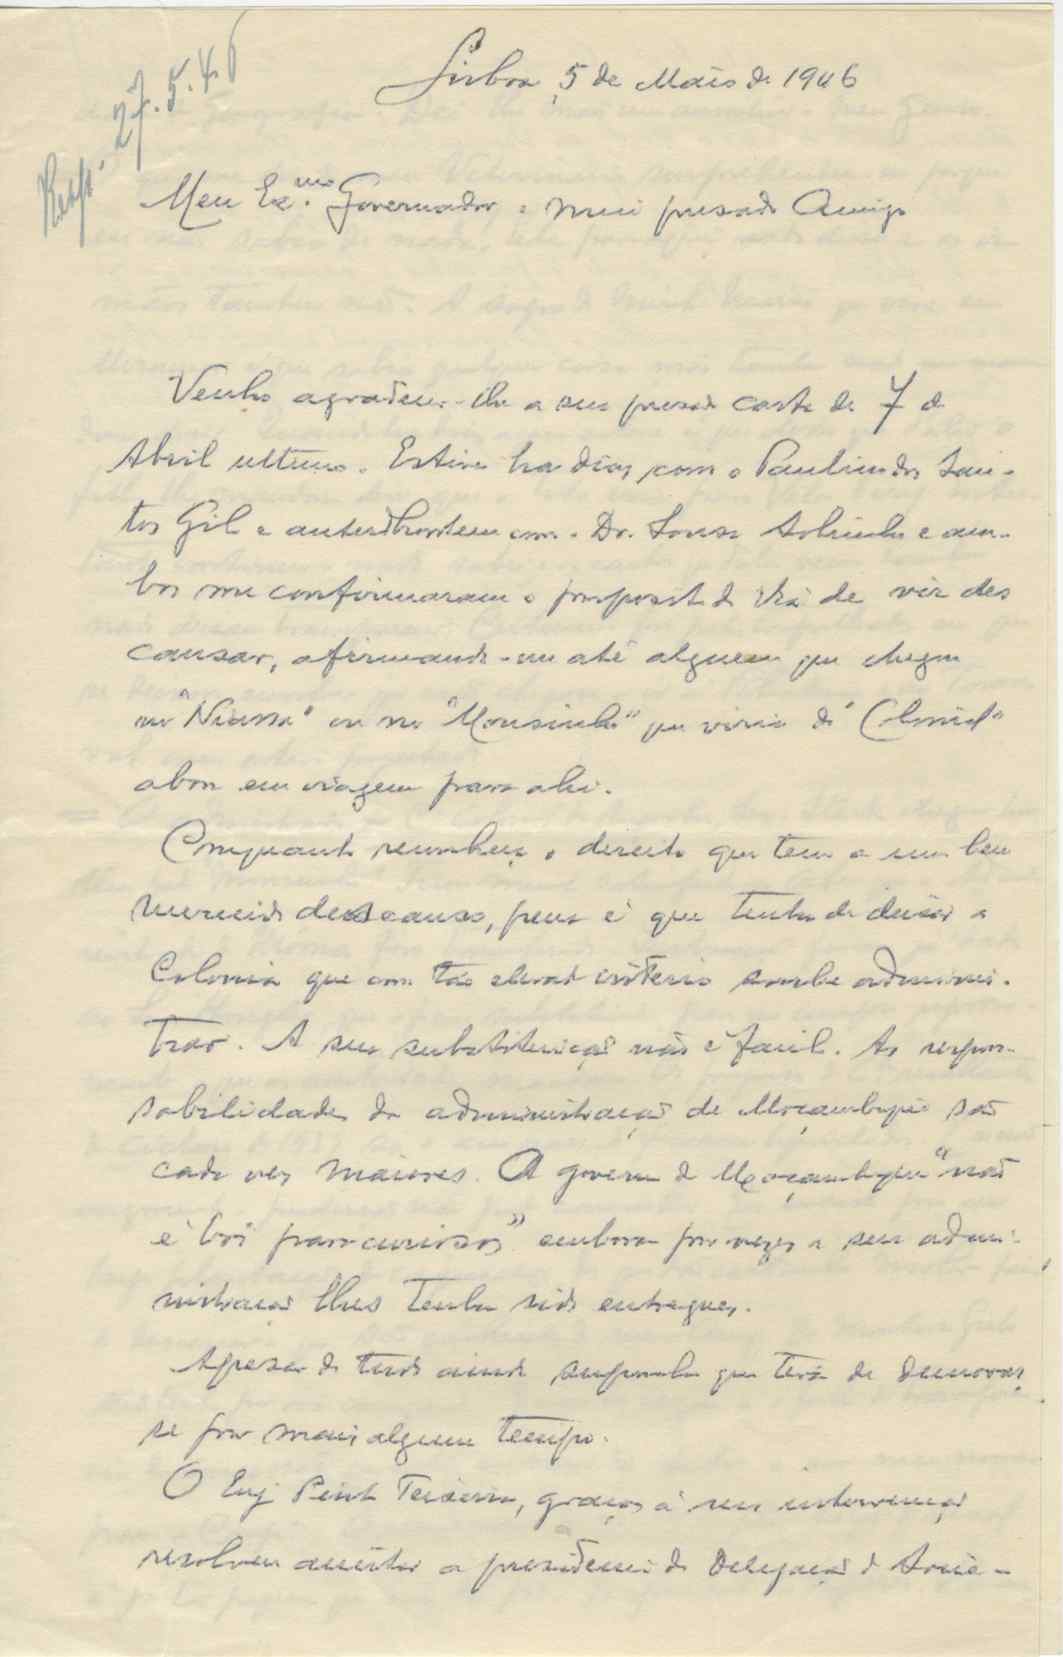 Resp. 27.5.46
Lisboa, 5 de Maio de 1946
Meu Ex.mo Governador e meu presado Amigo
Venho agradecer-lhe a sua presada carta de 7 de
Abril ultimo. Estive ha dias com o Paulino dos San-
tos Gil e anteshontem com o Dr. Sousa Sobrinho e am-
bos me confirmaram o proposito de V.Exa de vir des
cansar, afirmando-me até alguem que chegou
no "Niassa" ou no "Mousinho" que viria do "Colonial"
ora em viagem para ahi.
Comquanto reconheça o direito que tem a um bem
merecido descanso, pena é que tenha de deixar a
Colonia que com tão elevado critério soube adminis-
trar. A sua substituição não é facil. As respon-
sabilidades da administração de Moçambique são
cada vez maiores. O governo de Moçambique "não
é bói para curiosos" embora por vezes a sua admi-
nistração lhes tenha sido entregue.
Apesar de tudo ainda suponho que terá de demorar
se por mais algum tempo.
O Eng Pinto Teixeira, graças á sua intervenção
resolveu aceitar a presidencia da Delegação d